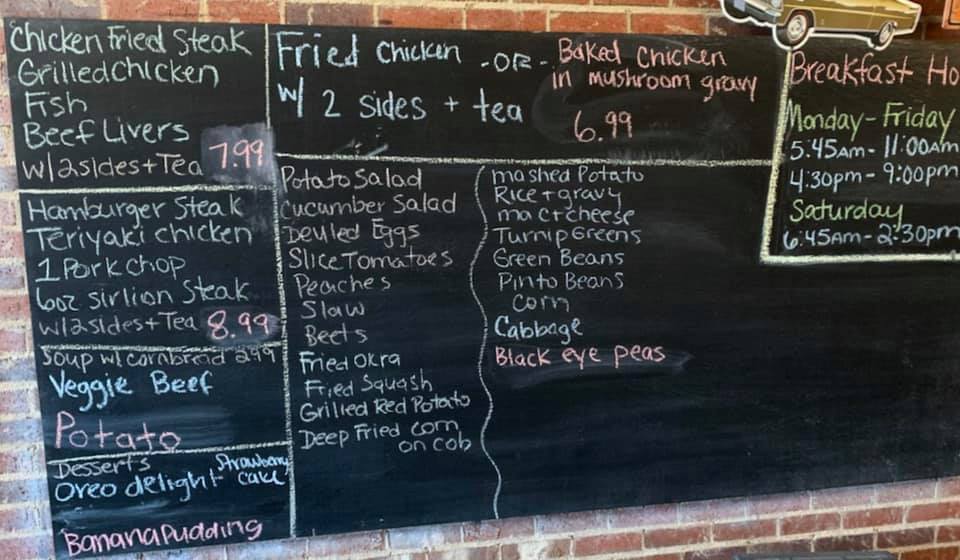 Chicken Fried Steak
Grilled Chicken
Fish
Beef Livers
w/2sides+Tea 7.99
Hamburger Steak
Teriyaki chicken
1 Pork chop
6oz sirlion Steak
w/2sides+Tea 8.99
Soup w/ cornbread 2.99
Veggie Beef
Potato
Desserts
Strawberry
Oreo delight cake
Banana Pudding
Fried Chicken -OR- Baked Chicken
in mushroom gravy
w/ 2 sides + tea
6.99
Potato Salad
Cucumber Salad
Deviled Eggs
Slice Tomatoes
Peaches
Slaw
Beets
Fried Okra
Fried Squash
Grilled Red Potato
Deep Fried corn
on cob
mashed Potato
Rice + gravy
mac+cheese
Turnip Greens
Green Beans
Pinto Beans
corn
Cabbage
Black eye peas
Breakfast Ho
Monday - Friday
5:45am - 11:00am
4:30pm - 9:00pm
Saturday
6:45am - 2:30pm